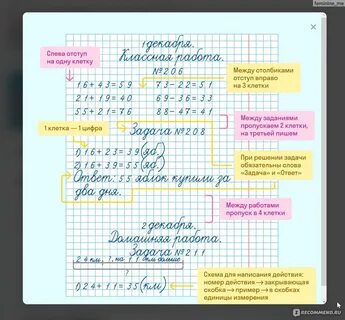 feminine_ma
1 декабря.
Классная работа.
№206
Слева отступ
на одну клетку
16+43=59 73-22=51
21+19=40 69-36=33
55+21=76 88-47=41
Между столбиками
отступ вправо
на 3 клетки
Между заданиями
пропускаем 2 клетки,
на третьей пишем
1 клетка — 1 цифра
Задача №208
1) 16+23=39 (яб.)
2) 16+39=55 (яб.)
Ответ: 55 яблок купили за
два дня.
При решении задачи
обязательны слова
«Задача» и «Ответ»
Между работами
пропуск в 4 клетки
2 декабря.
Домашняя работа.
Задача №211
24 км, ?, на 11 км больше
1) 24+11=35 (км)
Схема для написания действия:
номер действия → закрывающая
скобка → пример → в скобках
единицы измерения
RECOMMEND.RU